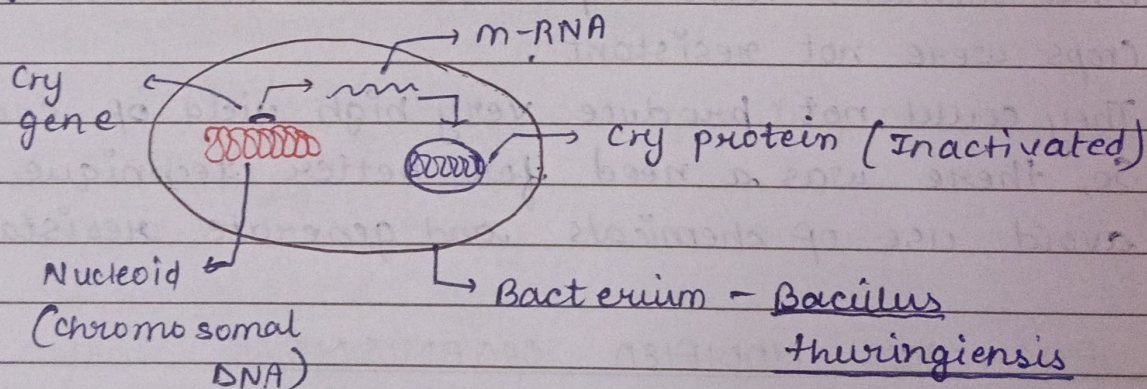 m-RNA
Cry
gene
Cry protein (Inactivated)
Nucleoid
(chromosomal
DNA)
Bacterium - Bacillus
thuringiensis